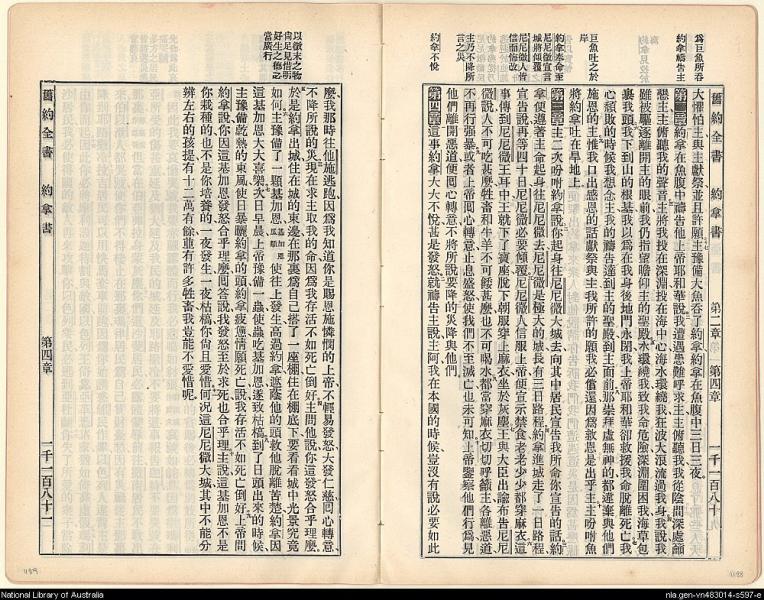 舊約全書 約拿書 第二章 第四章 一千一百八十
爲巨魚所吞
約拿禱告主
巨魚吐之於岸
約拿奉命至尼尼微宣言城將傾覆
尼尼微人皆信而悔改
主乃不降所言之災
約拿不悅
大懼怕主與主獻祭並且許願主豫備大魚吞了約拿約拿在魚腹中三日三夜
第二章 約拿在魚腹中禱告他上帝耶和華說我遭遇患難呼求主主俯聽我我從陰間深處籲
懇主主俯聽我的聲音主將我投在深淵投在海中心海水環繞我狂波大浪流過我身我說我
雖被驅逐離開主的眼前我仍指望瞻仰主的聖殿水環繞我致我命危險深淵圍困我海草包
裹我頭我下到山的根基我以爲在我身後地門永閉我上帝耶和華卻救援我命脫離死亡我
心頹敗的時候我想念主我的禱告達到主的聖殿到主面前那崇拜虛無神的都違棄與他們
施恩的主惟我口出感恩的話獻祭與主我所許的願我必償還因爲救恩是出乎主主吩咐魚
將約拿吐在旱地上
第三章 主二次吩咐約拿說你起身往尼尼微大城去向其中居民宣告我所命你宣告的話約
拿便遵著主命起身往尼尼微去尼尼微是極大的城長有三日路程約拿進城走了一日路程
宣告說再等四十日尼尼微必要傾覆尼尼微人信服上帝便宣示禁食老老少少都穿麻衣這
事傳到尼尼微王耳中王就下了寶座脫下朝服穿上麻衣坐於灰塵王與大臣出諭布告尼尼
微說人不可吃甚麼牲畜和牛羊不可餧甚麼也不可喝水都當穿麻衣切切呼籲主各離惡道
不再行强暴或者上帝囘心轉意止息盛怒使我們不至滅亡也未可知上帝鑒察他們行爲見
他們離開惡道便囘心轉意不將所說要降的災降與他們
第四章 這事約拿大大不悅甚是發怒就禱告主說主阿我在本國的時候豈沒有說必要如此
以微末之物尙足見惜明好生之德必當廣行
麼我那時往他施逃跑因爲我知道你是賜恩施憐憫的上帝不輕易發怒大發仁慈囘心轉意
不降所說的災現在求主取我的命因爲我存活不如死亡倒好主問他說你這發怒合乎理麼
於是約拿出城住在城的東邊在那裏爲自己搭了一座棚住在棚底下要看看城中光景究竟
如何主豫備了一顆基加恩 使往上發生高過約拿遮蔭他的頭救他脫離苦楚約拿因
這基加恩大大喜樂次日早晨上帝豫備一蟲使蟲吃基加恩遂致枯槁到了日頭出來的時候
主豫備乾熱的東風使日暴曬約拿的頭約拿疲憊情願死亡說我存活不如死亡倒好上帝問
約拿說你因這基加恩發怒合乎理麼囘答說我發怒至於求死也合乎理主說這基加恩不是
你栽種的也不是你培養的一夜發生一夜枯槁你尙且愛惜何况這尼尼微大城其中不能分
辨左右的孩提有十二萬有餘並有許多牲畜我豈能不愛惜呢
舊約全書 約拿書 第四章 一千一百八十一
National Library of Australia
nla.gen-vn483014-s597-e